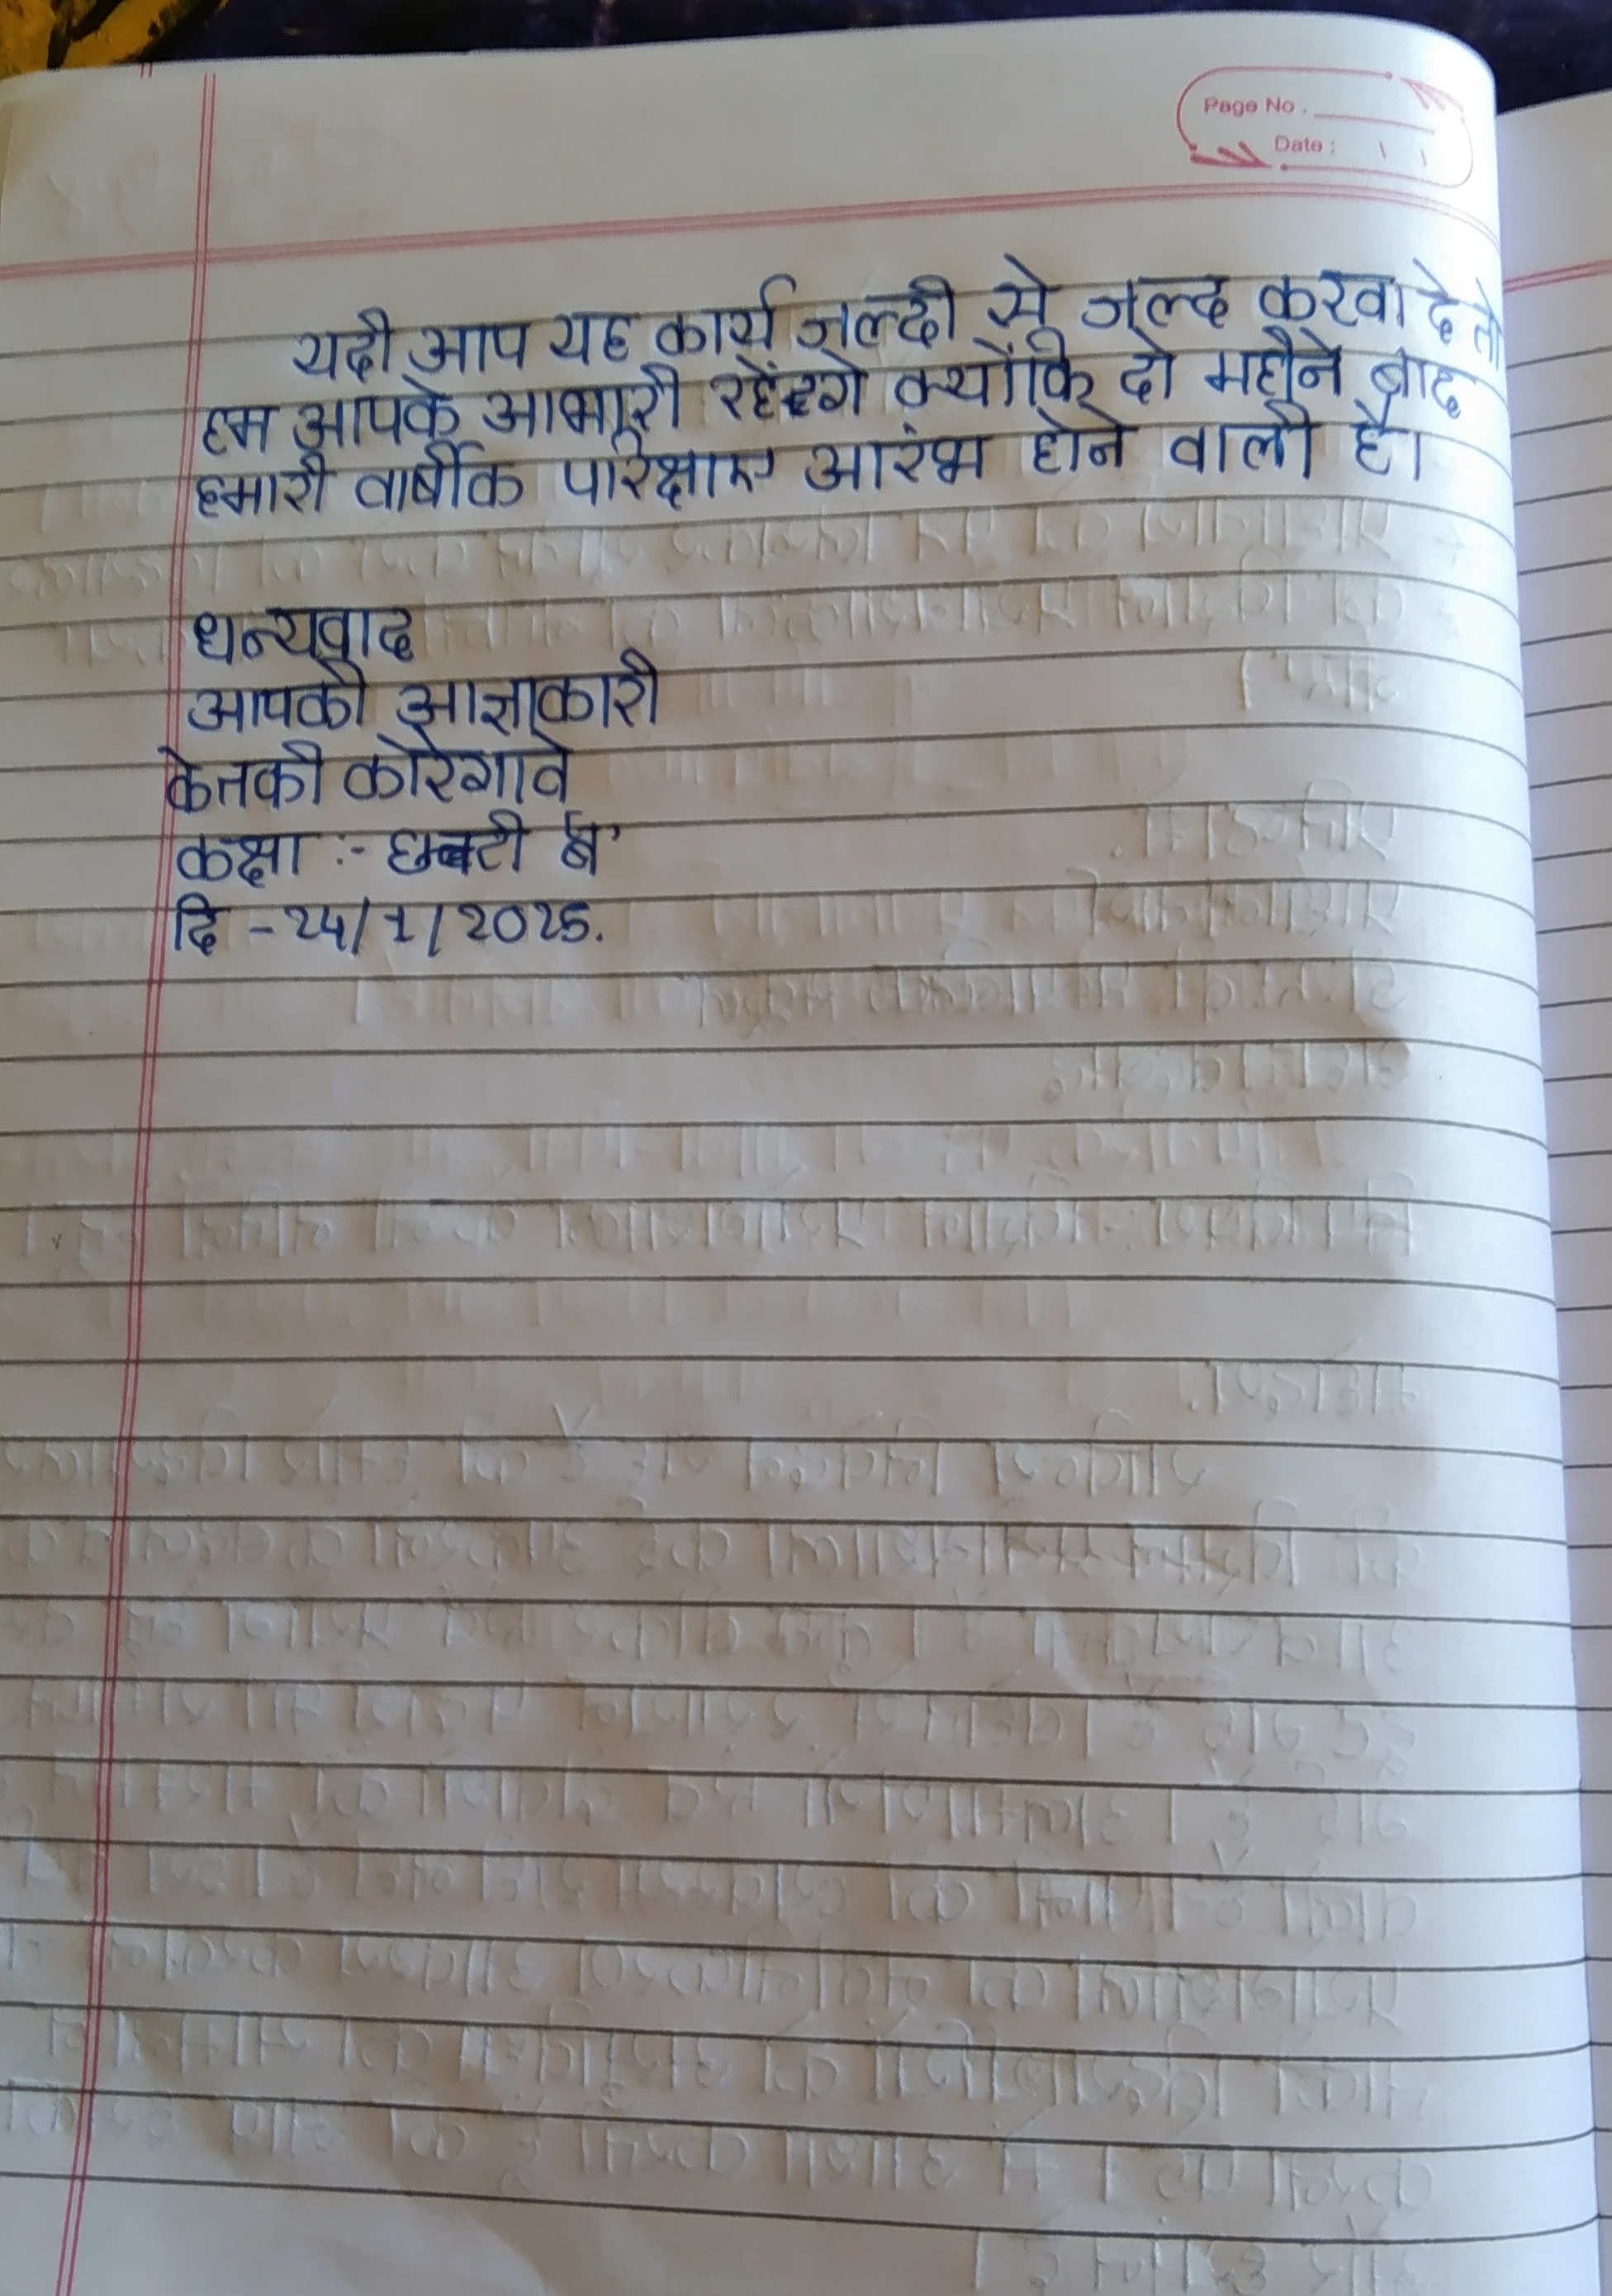 Page No.
Date :
यदी आप यह कार्य जल्दी से जल्द करवा दे तो
हम आपके आभारी रहेंगे क्योंकि दो महीने बाद
हमारी वार्षीक परिक्षाए आरंभ होने वाली है।
धन्यवाद
आपकी आज्ञाकारी
केतकी कोरेगावे
कक्षा :- छटी 'ब'
दि - 24/1/2025.